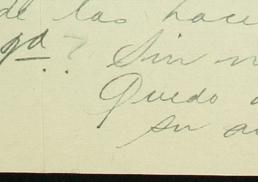 de las hace
qd? Sin n
Quedo a
su a